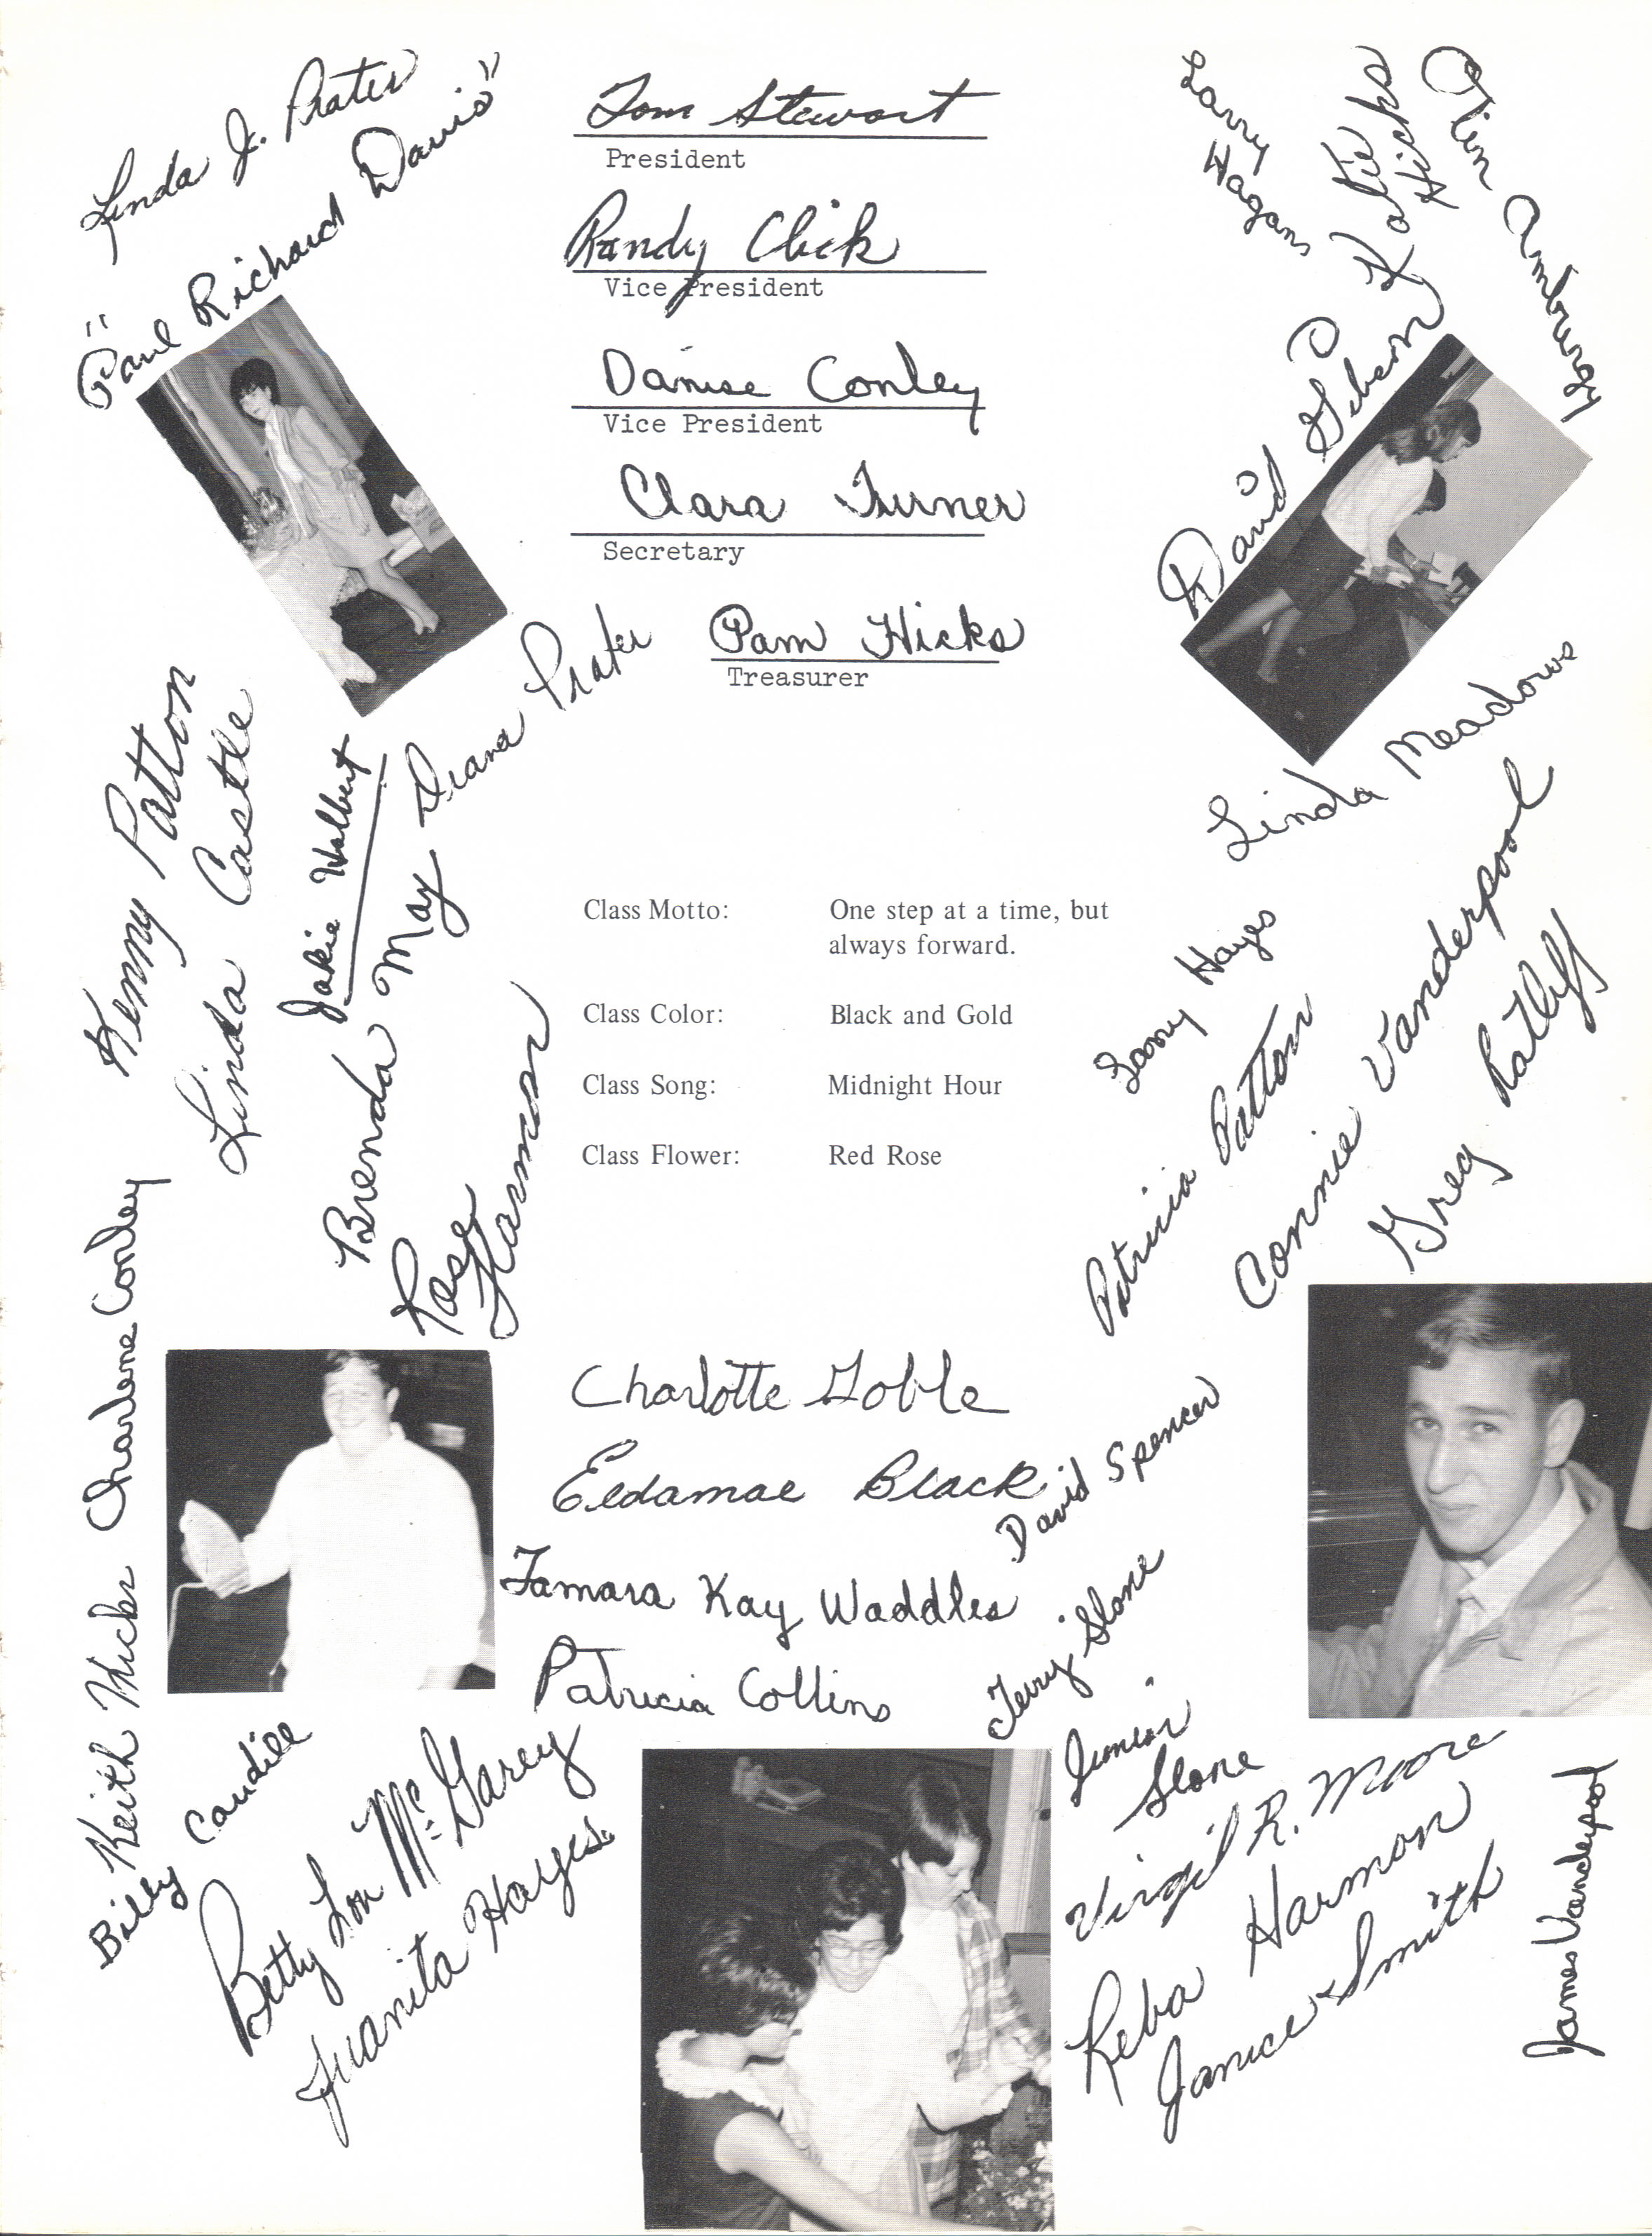 Linda J. Prater
"Paul Richard Davis"
Tom Stewart
President
Randy Click
Vice President
Danise Conley
Vice President
Clara Turner
Secretary
Pam Hicks
Treasurer
Larry Hagans
Katie Hicks
Olen Amburgy
David P Gibson
Linda Meadows
Kenny Patton
Linda Castle
Jakie Halbert
Brenda May
Diana Prater
Rose Harmon
Class Motto: One step at a time, but
always forward.
Class Color: Black and Gold
Class Song: Midnight Hour
Class Flower: Red Rose
Larry Hayes
Patricia Patton
Connie Vanderpool
Greg Ratliff
Charlene Conley
Keith Hicks
Charlotte Goble
Eldamae Black
Tamara Kay Waddles
Patricia Collins
David Spencer
Terry Slone
Junior Slone
Billy Caudill
Betty Lou McGarey
Juanita Hayes
Virgil R. Moore
Reba Harmon
Janice Smith
James Vanderpool